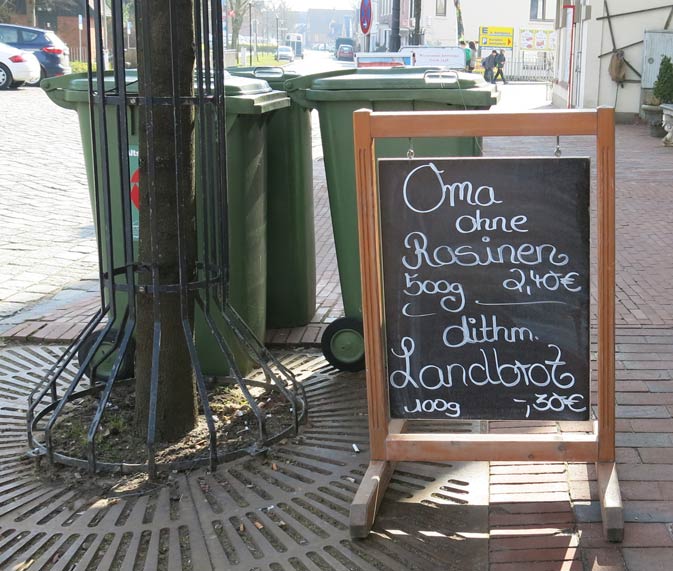 Oma
ohne
Rosinen
500g 2,40€
dithm.
Landbrot
100g -,30€